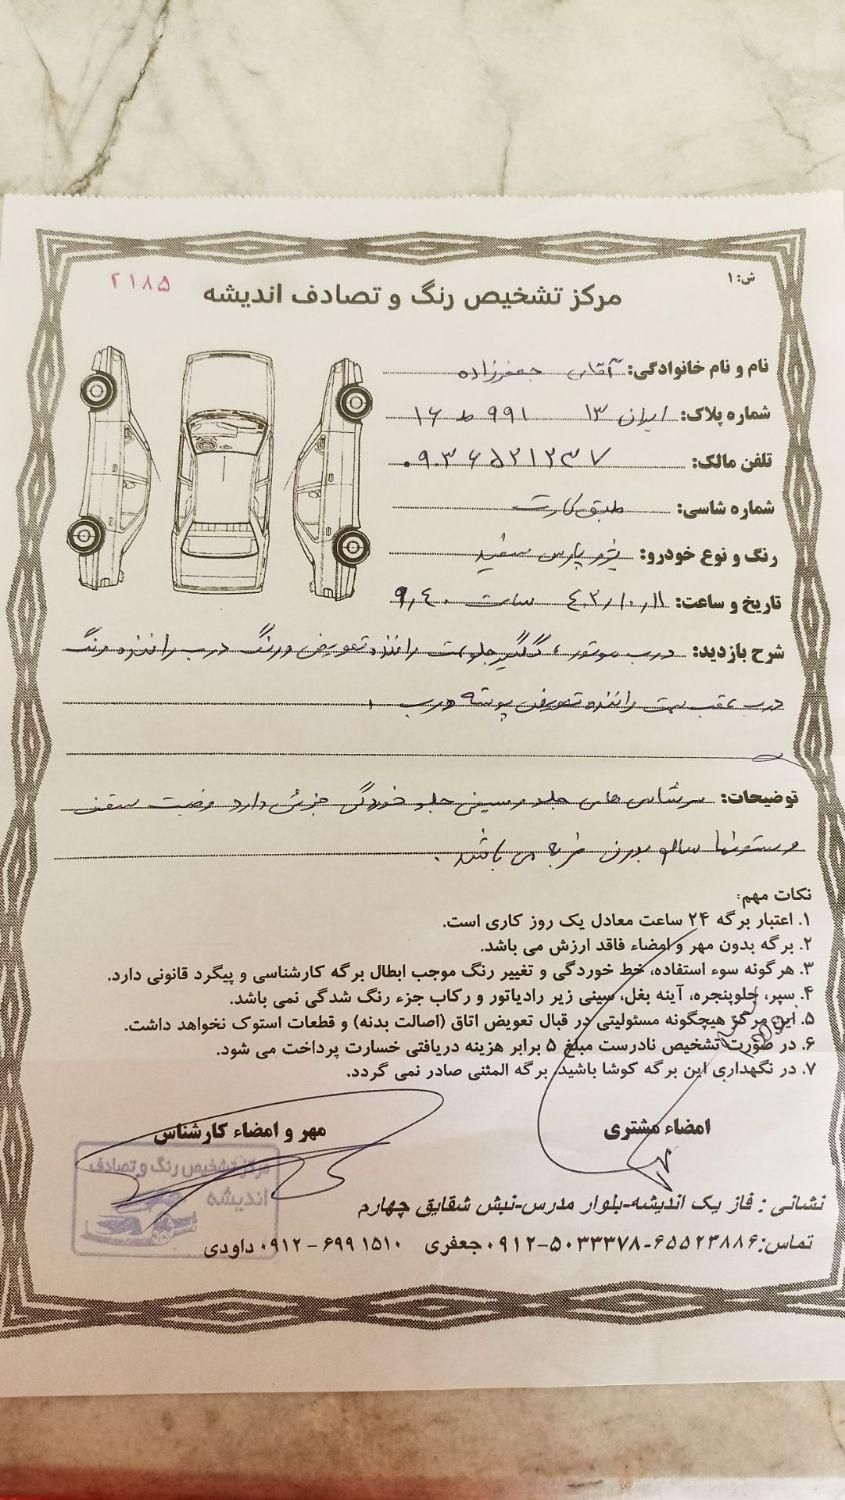 ش: ۱
۲۱۸۵
مرکز تشخیص رنگ و تصادف اندیشه
نام و نام خانوادگی: آقای جعفرزاده
شماره پلاک: ایران ۱۳ ۹۹۱ ط ۱۶
تلفن مالک: ۰۹۰۳۶۵۲۱۲۳۷
شماره شاسی: طبق کارت
رنگ و نوع خودرو: پژو پارس سفید
تاریخ و ساعت: ساعت ۹٫۴۰
شرح بازدید: درب موتور، گلگیر جلو سمت راننده تعویض و رنگ درب راننده رنگ
درب عقب سمت راننده تعویض پوسته درب
توضیحات: سرشاسی های جلو و سینی جلو خوردگی جزئی دارد وضعیت سقف
و ستونها سالم بدون ضربه می باشد.
نکات مهم:
۱. اعتبار برگه ۲۴ ساعت معادل یک روز کاری است.
۲. برگه بدون مهر و امضاء فاقد ارزش می باشد.
۳. هرگونه سوء استفاده، خط خوردگی و تغییر رنگ موجب ابطال برگه کارشناسی و پیگرد قانونی دارد.
۴. سپر، جلوپنجره، آینه بغل، سینی زیر رادیاتور و رکاب جزء رنگ شدگی نمی باشد.
۵. این مرکز هیچگونه مسئولیتی در قبال تعویض اتاق (اصالت بدنه) و قطعات استوک نخواهد داشت.
۶. در صورت تشخیص نادرست مبلغ ۵ برابر هزینه دریافتی خسارت پرداخت می شود.
۷. در نگهداری این برگه کوشا باشید، برگه المثنی صادر نمی گردد.
امضاء مشتری
مهر و امضاء کارشناس
مرکز تشخیص رنگ و تصادف
اندیشه
نشانی : فاز یک اندیشه-بلوار مدرس-نبش شقایق چهارم
تماس: ۶۵۵۲۳۸۸۶-۰۹۱۲-۵۰۳۳۳۷۸ جعفری ۰۹۱۲-۶۹۹۱۵۱۰ داودی